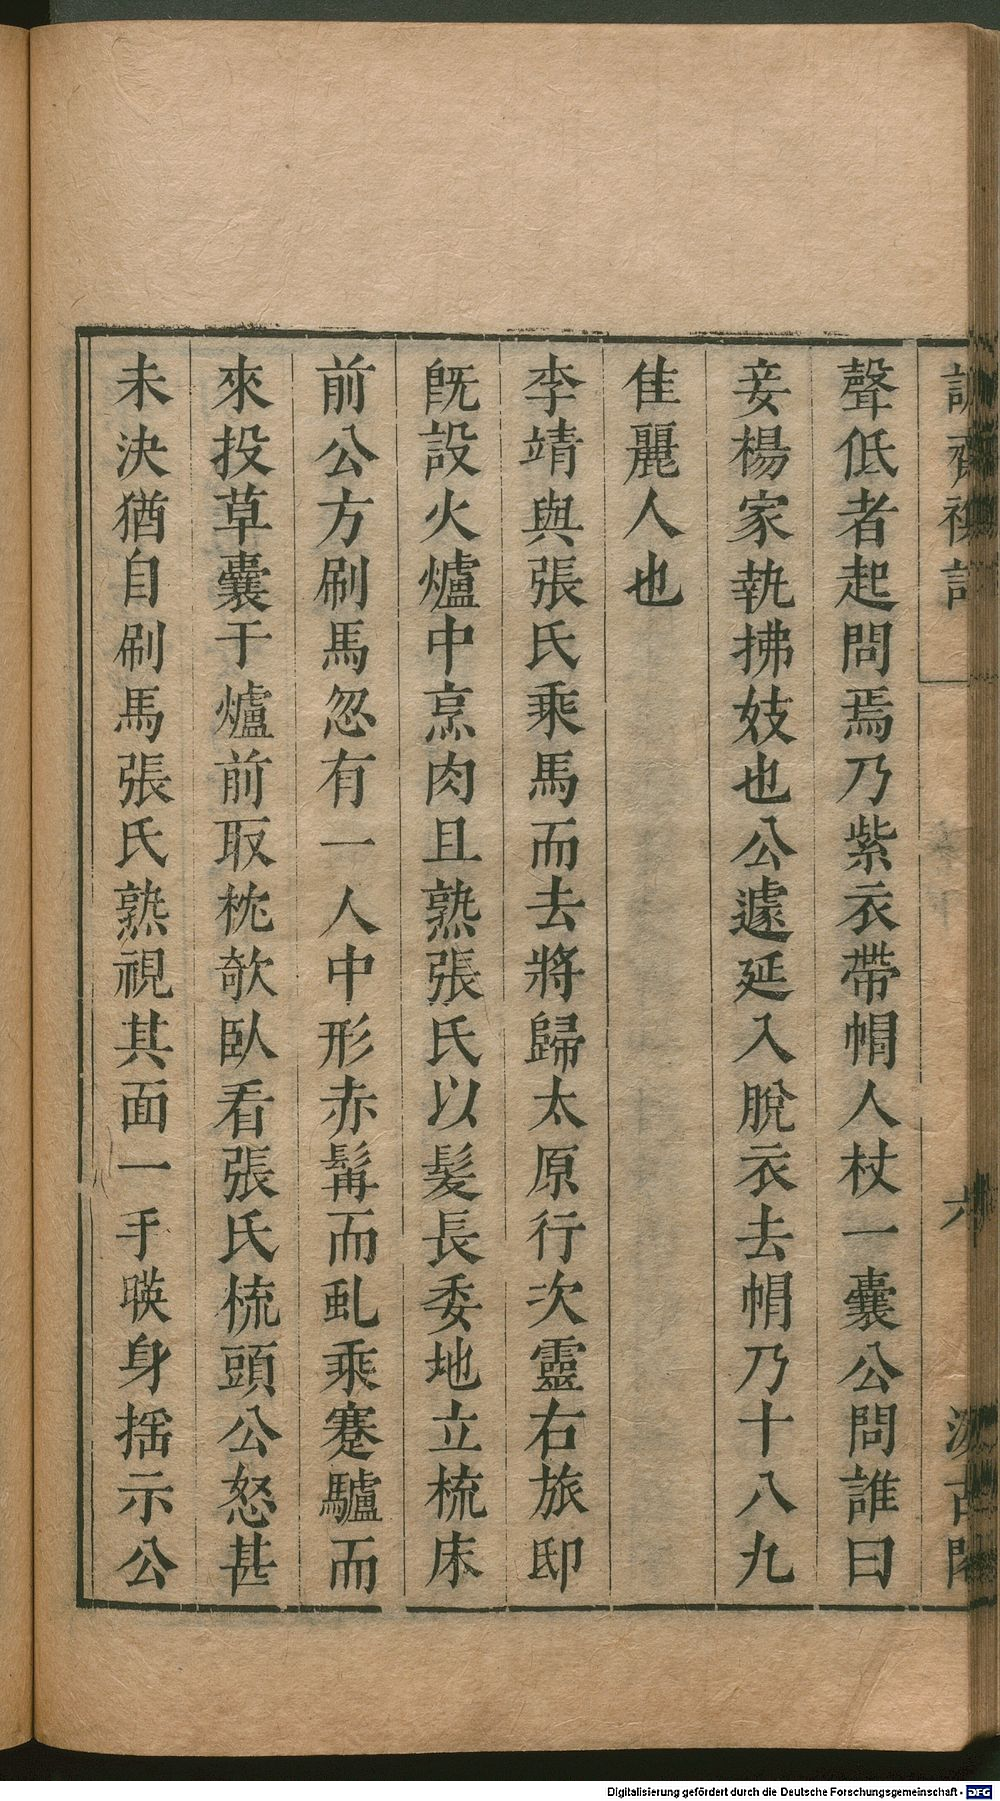 聲低者起問焉乃紫衣帶帽人杖一囊公問誰曰
妾楊家執拂妓也公遽延入脫衣去帽乃十八九
佳麗人也
李靖與張氏乘馬而去將歸太原行次靈右旅邸
旣設火爐中烹肉且熟張氏以髮長委地立梳床
前公方刷馬忽有一人中形赤髯而虬乘蹇驢而
來投草囊于爐前取枕欹臥看張氏梳頭公怒甚
未決猶自刷馬張氏熟視其面一手暎身搖示公
六
汲古閣
Digitalisierung gefördert durch die Deutsche Forschungsgemeinschaft - DFG